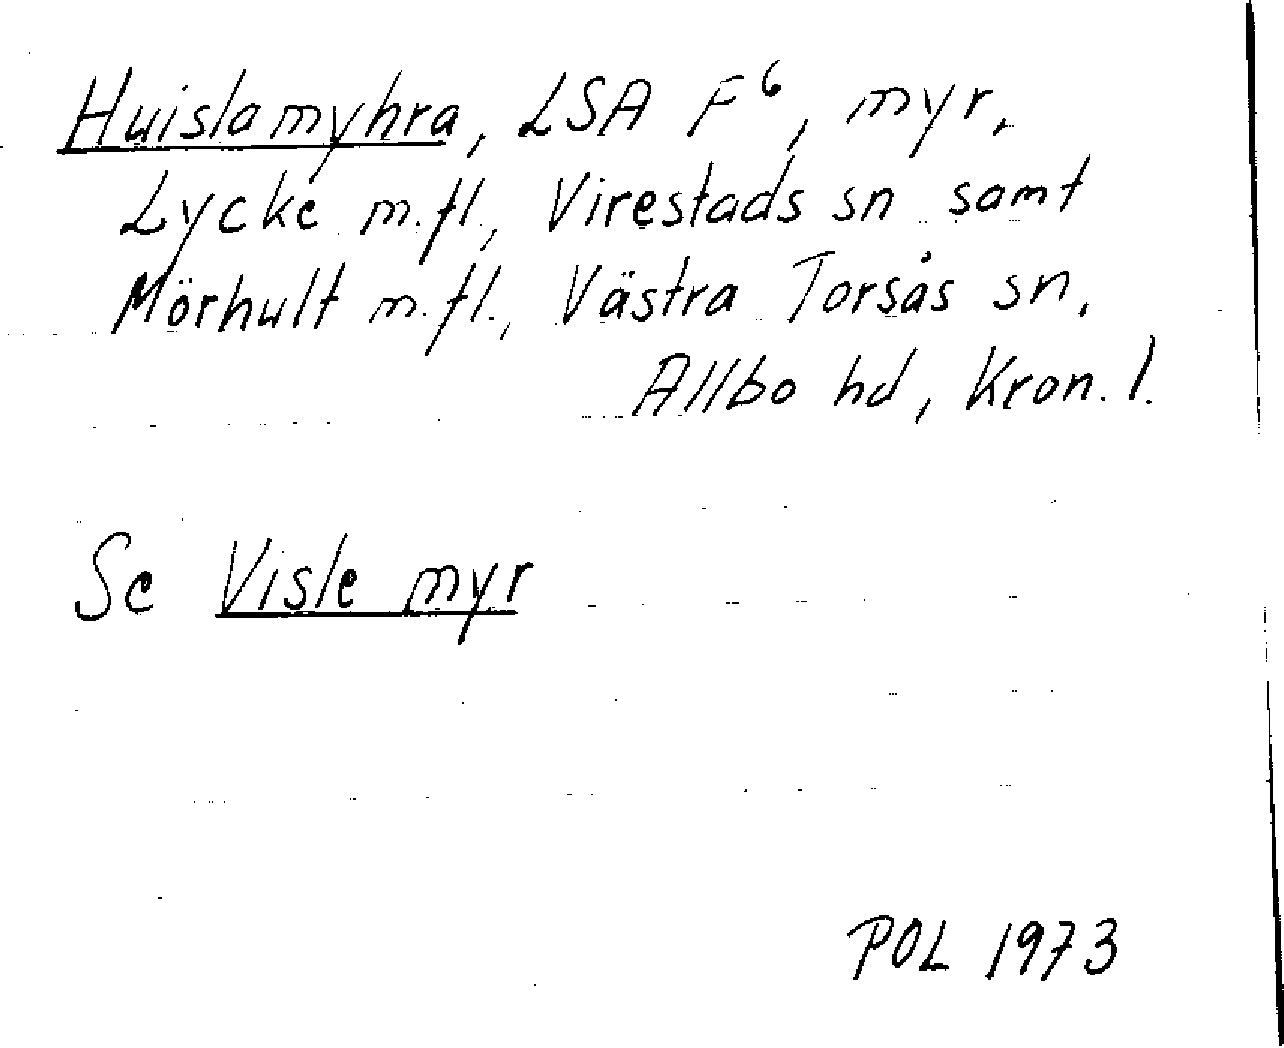 Huislamyhra, LSA F⁶, myr,
Lycke m.fl., Virestads sn samt
Mörhult m.fl., Västra Torsås sn,
Allbo hd, Kron. l.
Se Visle myr
POL 1973